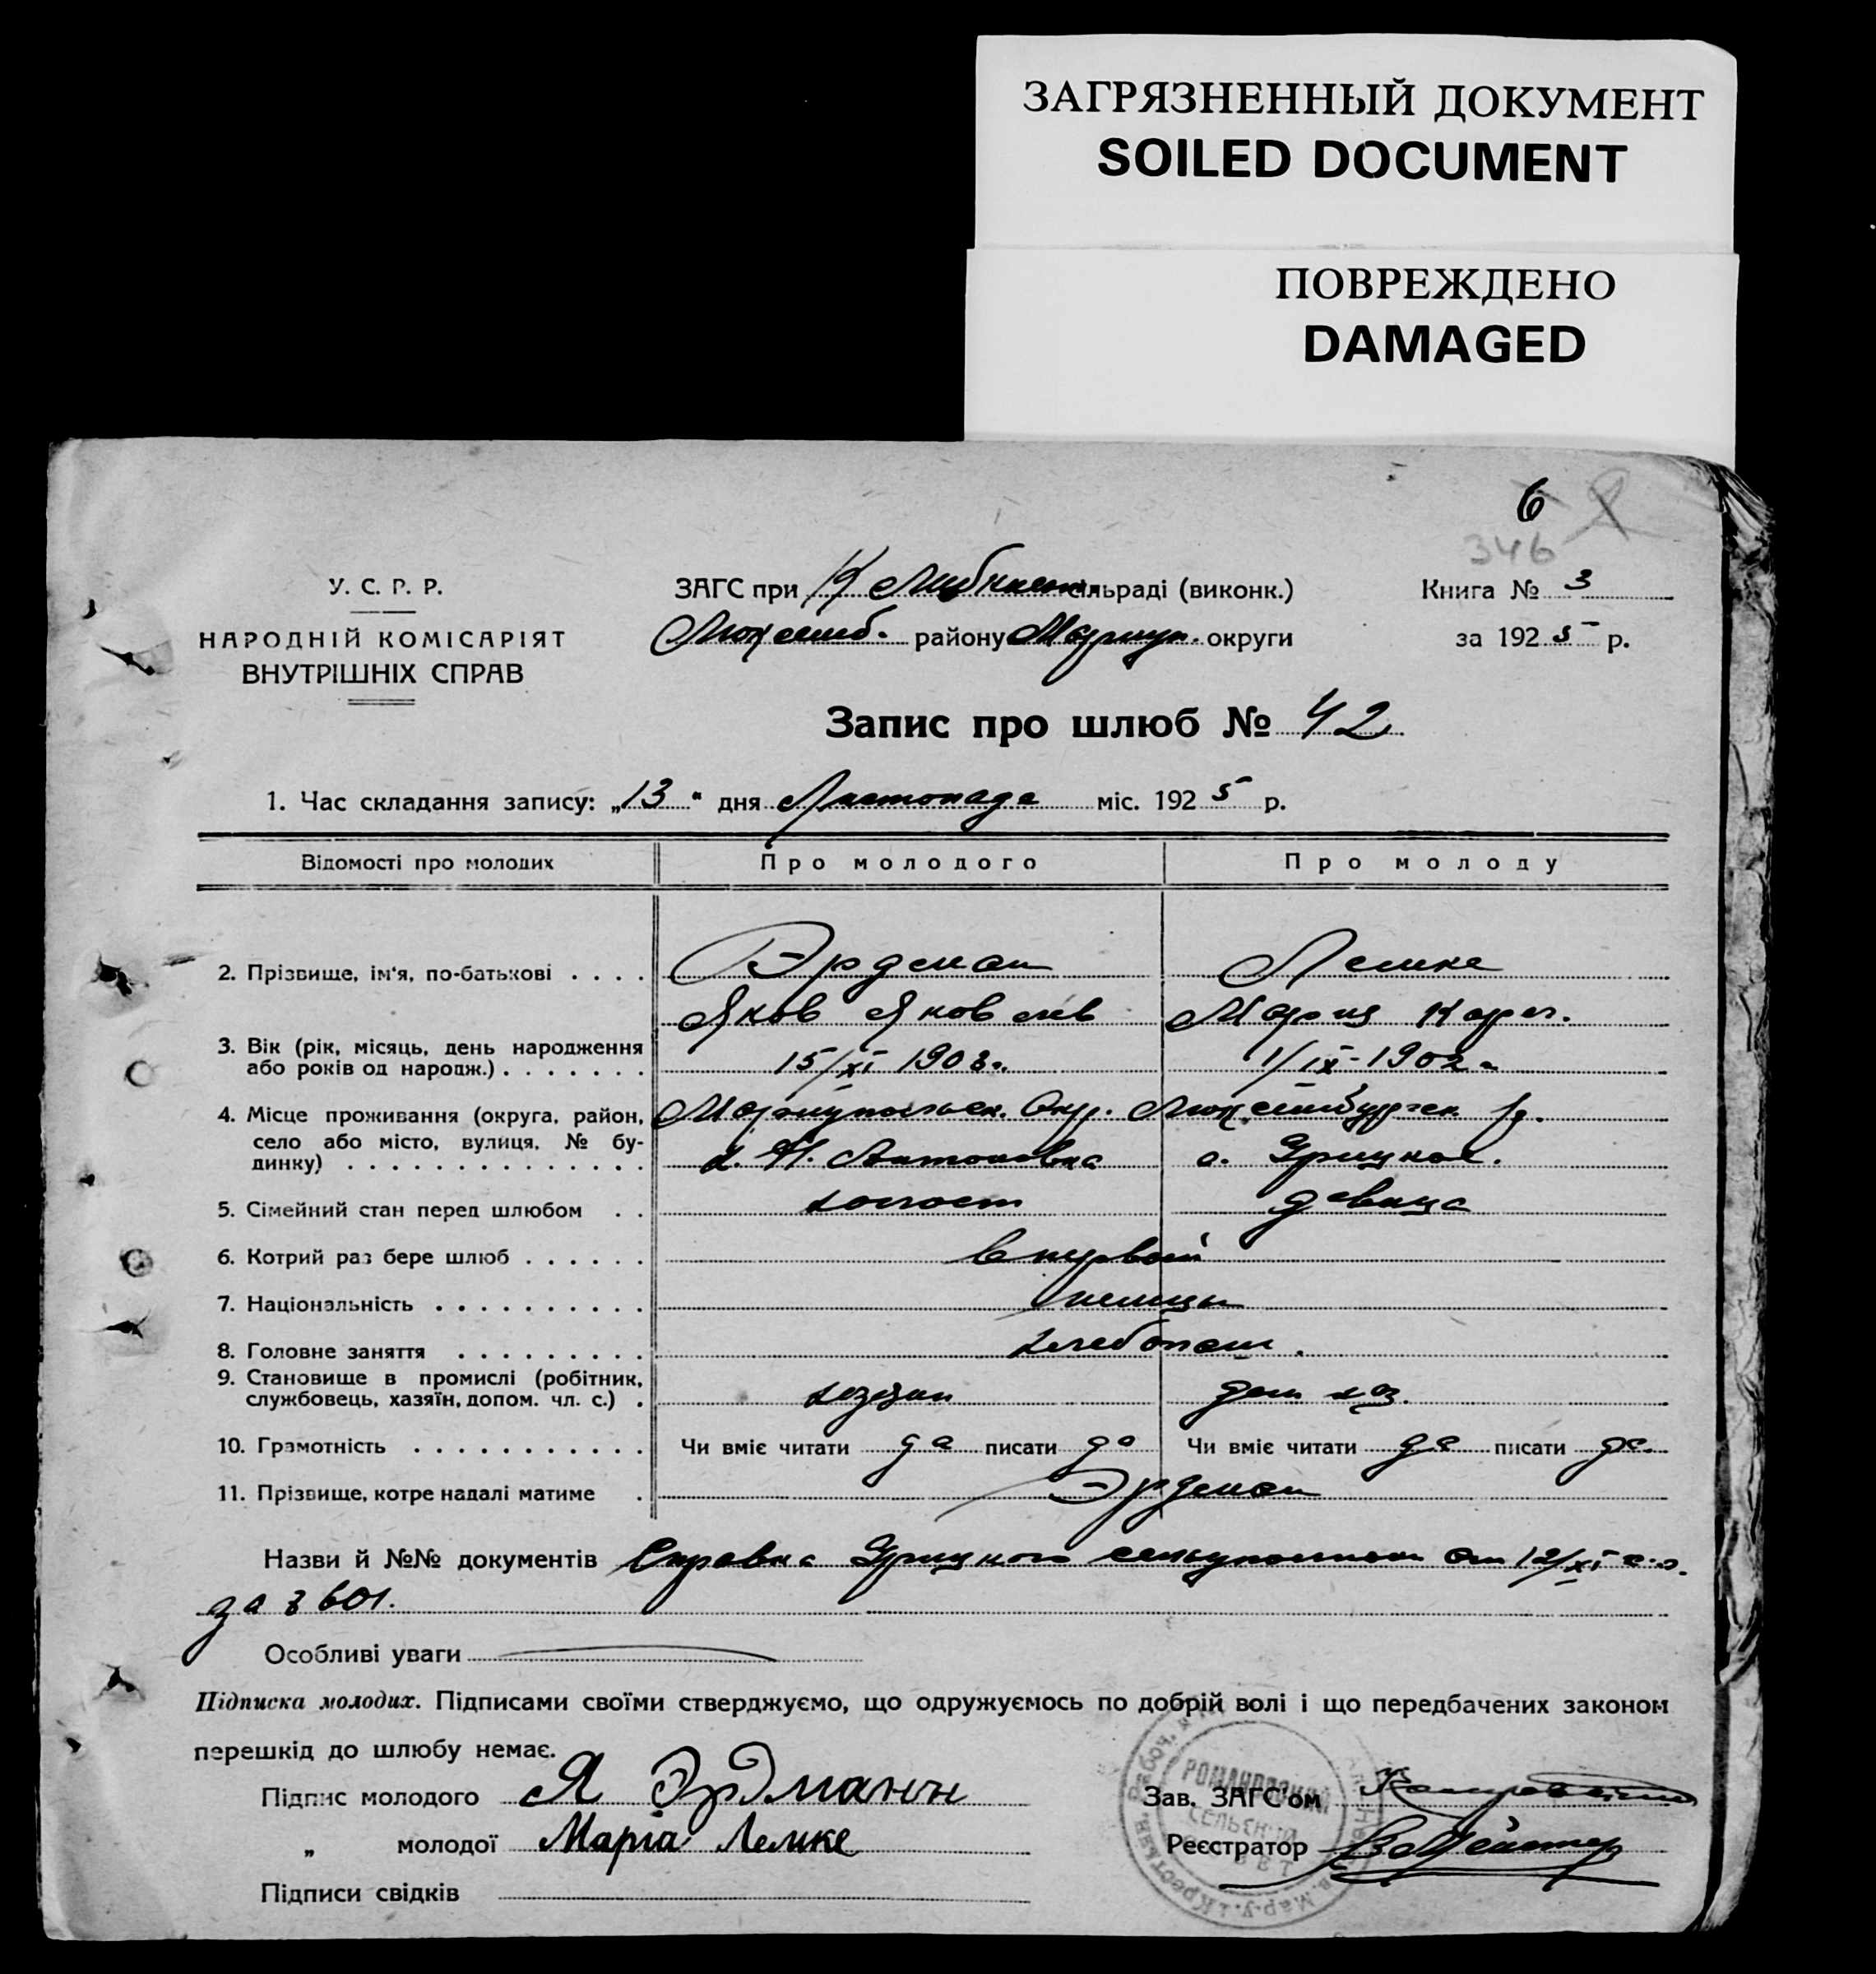 ЗАГРЯЗНЕННЫЙ ДОКУМЕНТ
SOILED DOCUMENT
ПОВРЕЖДЕНО
DAMAGED
6
346
У. С. Р. Р.
НАРОДНІЙ КОМІСАРІЯТ
ВНУТРІШНІХ СПРАВ
ЗАГС при сільраді (виконк.)
Люксемб. району Мариуп. округи
Книга № 3
за 1925 р.
Запис про шлюб № 42
1. Час складання запису: „13" дня Листопада міс. 1925 р.
Відомості про молодих Про молодого Про молоду
2. Прізвище, ім'я, по-батькові . . . . Эрдман Лемке
Яков Яковлев Мария Карл.
3. Вік (рік, місяць, день народження
або років од народж.) . . . . . . . 15/XI 1903 1/IX-1902
4. Місце проживання (округа, район, Мариупольск. Окр. Люксембургск. р.
село або місто, вулиця, № бу-
динку) . . . . . . . . . . . . . . Антоновка
5. Сімейний стан перед шлюбом . . холост девица
6. Котрий раз бере шлюб . . . . . . впервый
7. Національність . . . . . . . . . . немцы
8. Головне заняття . . . . . . . . . хлебопаш.
9. Становище в промислі (робітник,
службовець, хазяїн, допом. чл. с.) . хазяин дом хоз.
10. Грамотність . . . . . . . . . . . Чи вміє читати да писати да Чи вміє читати да писати да
11. Прізвище, котре надалі матиме . Эрдман
Назви й №№ документів Справка от 12/XI с.г.
за 3601.
Особливі уваги
Підписка молодих. Підписами своїми стверджуємо, що одружуємось по добрій волі і що передбачених законом
перешкід до шлюбу немає.
Підпис молодого Я Эрдманн
„ молодої Маріа Лемке
Підписи свідків
Зав. ЗАГС'ом
Реєстратор
СЕЛЬСКИЙ